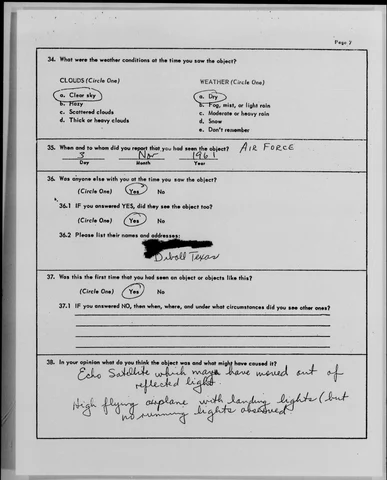 Page 7
34. What were the weather conditions at the time you saw the object?
CLOUDS (Circle One) WEATHER (Circle One)
a. Clear sky a. Dry
b. Hazy b. Fog, mist, or light rain
c. Scattered clouds c. Moderate or heavy rain
d. Thick or heavy clouds d. Snow
e. Don't remember
35. When and to whom did you report that you had seen the object? AIR FORCE
3 Nov 1961
Day Month Year
36. Was anyone else with you at the time you saw the object?
(Circle One) Yes No
36.1 IF you answered YES, did they see the object too?
(Circle One) Yes No
36.2 Please list their names and addresses:
Diboll Texas
37. Was this the first time that you had seen an object or objects like this?
(Circle One) Yes No
37.1 IF you answered NO, then when, where, and under what circumstances did you see other ones?
38. In your opinion what do you think the object was and what might have caused it?
Echo Satellite which may have moved out of
reflected light.
High flying airplane with landing lights (but
no running lights observed